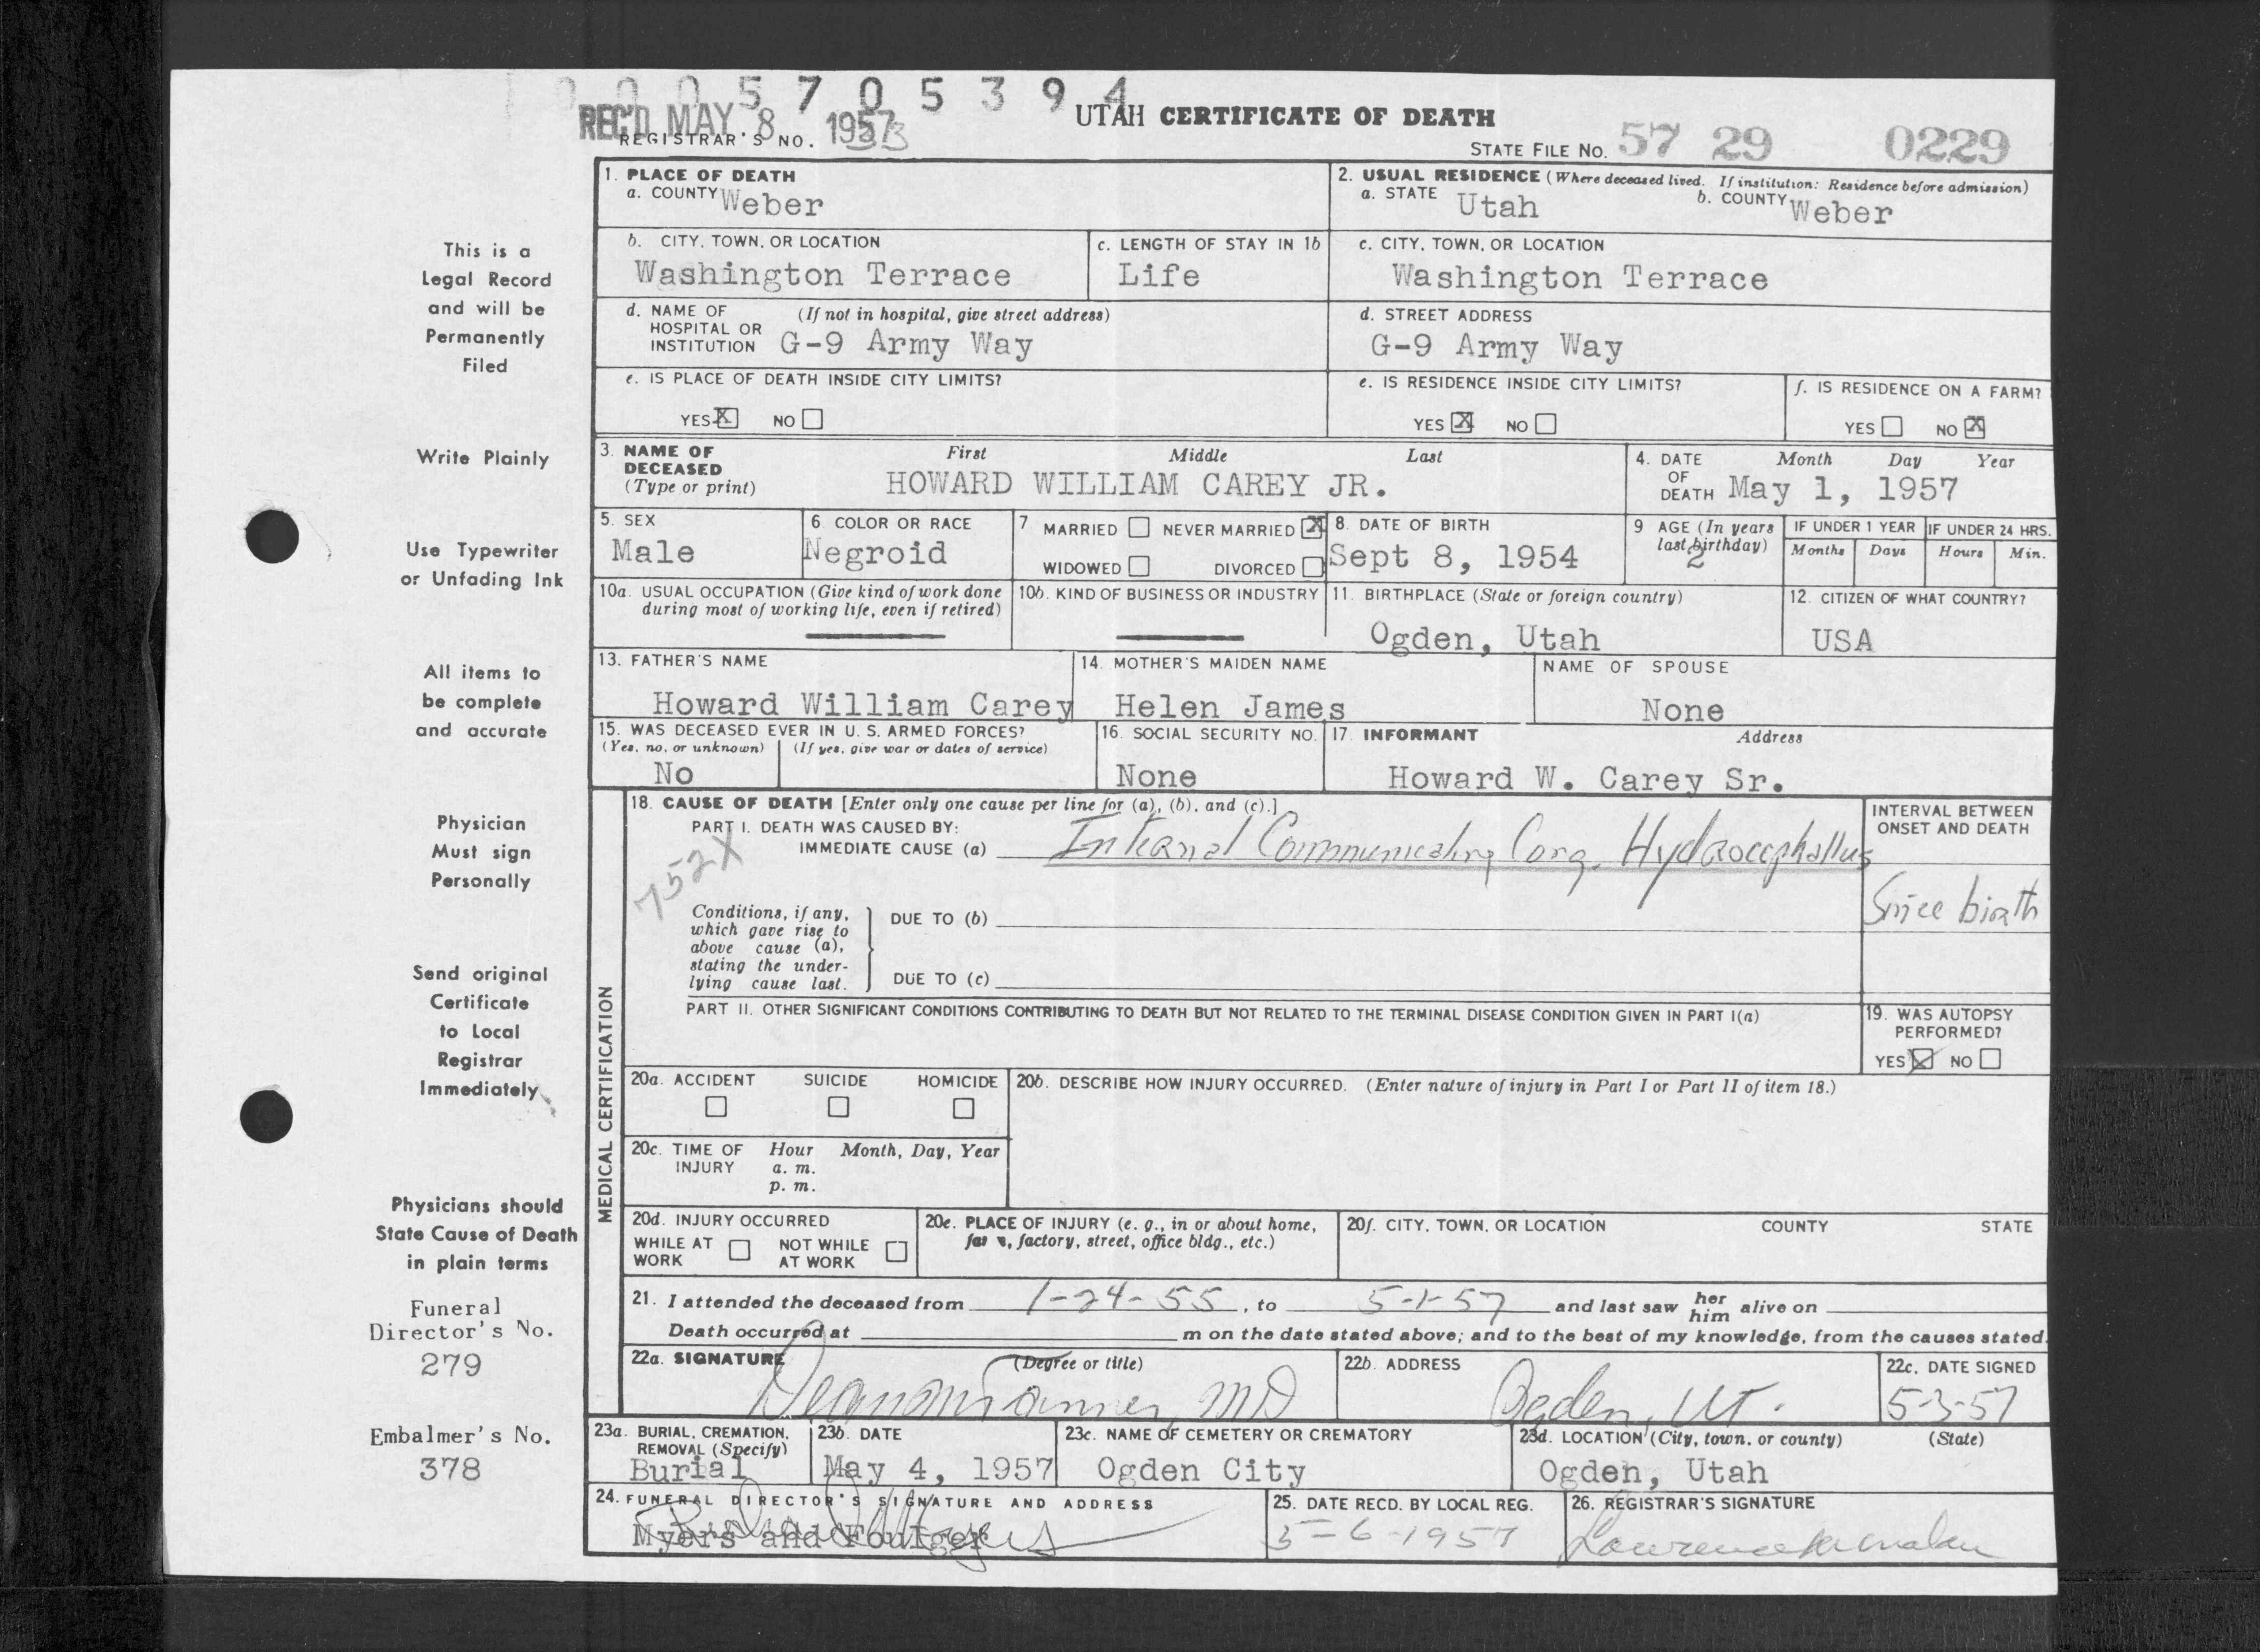 0 0 0 5 7 0 5 3 9 4
REC'D MAY 8 1957
UTAH CERTIFICATE OF DEATH
REGISTRAR'S NO.
STATE FILE NO. 57 29 0229
This is a
Legal Record
and will be
Permanently
Filed
Write Plainly
Use Typewriter
or Unfading Ink
All items to
be complete
and accurate
Physician
Must sign
Personally
Send original
Certificate
to Local
Registrar
Immediately
Physicians should
State Cause of Death
in plain terms
Funeral
Director's No.
279
Embalmer's No.
378
1. PLACE OF DEATH
a. COUNTY Weber
2. USUAL RESIDENCE (Where deceased lived. If institution: Residence before admission)
a. STATE Utah b. COUNTY Weber
b. CITY, TOWN, OR LOCATION
Washington Terrace
c. LENGTH OF STAY IN 1b
Life
c. CITY, TOWN, OR LOCATION
Washington Terrace
d. NAME OF (If not in hospital, give street address)
HOSPITAL OR
INSTITUTION G-9 Army Way
d. STREET ADDRESS
G-9 Army Way
e. IS PLACE OF DEATH INSIDE CITY LIMITS?
YES X NO
e. IS RESIDENCE INSIDE CITY LIMITS?
YES X NO
f. IS RESIDENCE ON A FARM?
YES NO X
3. NAME OF First Middle Last
DECEASED
(Type or print) HOWARD WILLIAM CAREY JR.
4. DATE Month Day Year
OF
DEATH May 1, 1957
5. SEX
Male
6. COLOR OR RACE
Negroid
7. MARRIED NEVER MARRIED X
WIDOWED DIVORCED
8. DATE OF BIRTH
Sept 8, 1954
9 AGE (In years
last birthday)
2
IF UNDER 1 YEAR
Months Days
IF UNDER 24 HRS.
Hours Min.
10a. USUAL OCCUPATION (Give kind of work done
during most of working life, even if retired)
10b. KIND OF BUSINESS OR INDUSTRY
11. BIRTHPLACE (State or foreign country)
Ogden, Utah
12. CITIZEN OF WHAT COUNTRY?
USA
13. FATHER'S NAME
Howard William Carey
14. MOTHER'S MAIDEN NAME
Helen James
NAME OF SPOUSE
None
15. WAS DECEASED EVER IN U. S. ARMED FORCES?
(Yes, no, or unknown) (If yes, give war or dates of service)
No
16. SOCIAL SECURITY NO.
None
17. INFORMANT Address
Howard W. Carey Sr.
MEDICAL CERTIFICATION
18. CAUSE OF DEATH [Enter only one cause per line for (a), (b), and (c).]
PART I. DEATH WAS CAUSED BY:
IMMEDIATE CAUSE (a) Internal Communicating Cong. Hydrocephallus
752X
INTERVAL BETWEEN
ONSET AND DEATH
Since birth
Conditions, if any,
which gave rise to
above cause (a),
stating the under-
lying cause last.
DUE TO (b)
DUE TO (c)
PART II. OTHER SIGNIFICANT CONDITIONS CONTRIBUTING TO DEATH BUT NOT RELATED TO THE TERMINAL DISEASE CONDITION GIVEN IN PART I(a)
19. WAS AUTOPSY
PERFORMED?
YES X NO
20a. ACCIDENT SUICIDE HOMICIDE
20b. DESCRIBE HOW INJURY OCCURRED. (Enter nature of injury in Part I or Part II of item 18.)
20c. TIME OF Hour Month, Day, Year
INJURY a. m.
p. m.
20d. INJURY OCCURRED
WHILE AT NOT WHILE
WORK AT WORK
20e. PLACE OF INJURY (e. g., in or about home,
factory, street, office bldg., etc.)
20f. CITY, TOWN, OR LOCATION COUNTY STATE
21. I attended the deceased from 1-24-55, to 5-1-57 and last saw her him alive on
Death occurred at m on the date stated above; and to the best of my knowledge, from the causes stated.
22a. SIGNATURE (Degree or title)
Tanner, MD
22b. ADDRESS
Ogden, Ut.
22c. DATE SIGNED
5-3-57
23a. BURIAL, CREMATION,
REMOVAL (Specify)
Burial
23b. DATE
May 4, 1957
23c. NAME OF CEMETERY OR CREMATORY
Ogden City
23d. LOCATION (City, town, or county) (State)
Ogden, Utah
24. FUNERAL DIRECTOR'S SIGNATURE AND ADDRESS
Myers and Foulger
25. DATE RECD. BY LOCAL REG.
5-6-1957
26. REGISTRAR'S SIGNATURE